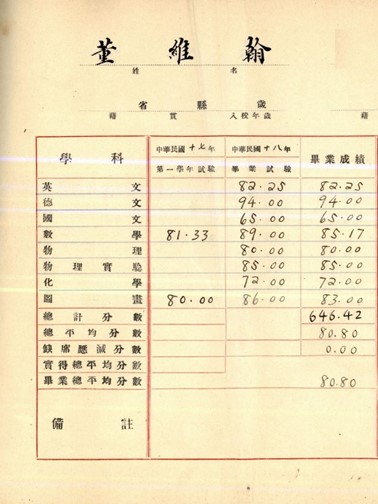 董維翰
姓 名
省 縣 歲
籍 貫 入校年歲 籍
學 科 中華民國十七年 第一學年試驗 中華民國十八年 畢業試驗 畢業成績
英 文 82.25 82.25
德 文 94.00 94.00
國 文 65.00 65.00
數 學 81.33 89.00 85.17
物 理 80.00 80.00
物理實驗 85.00 85.00
化 學 72.00 72.00
圖 畫 80.00 86.00 83.00
總計分數 646.42
總平均分數 80.80
缺席應減分數 0.00
實得總平均分數
畢業總平均分數 80.80
備 註